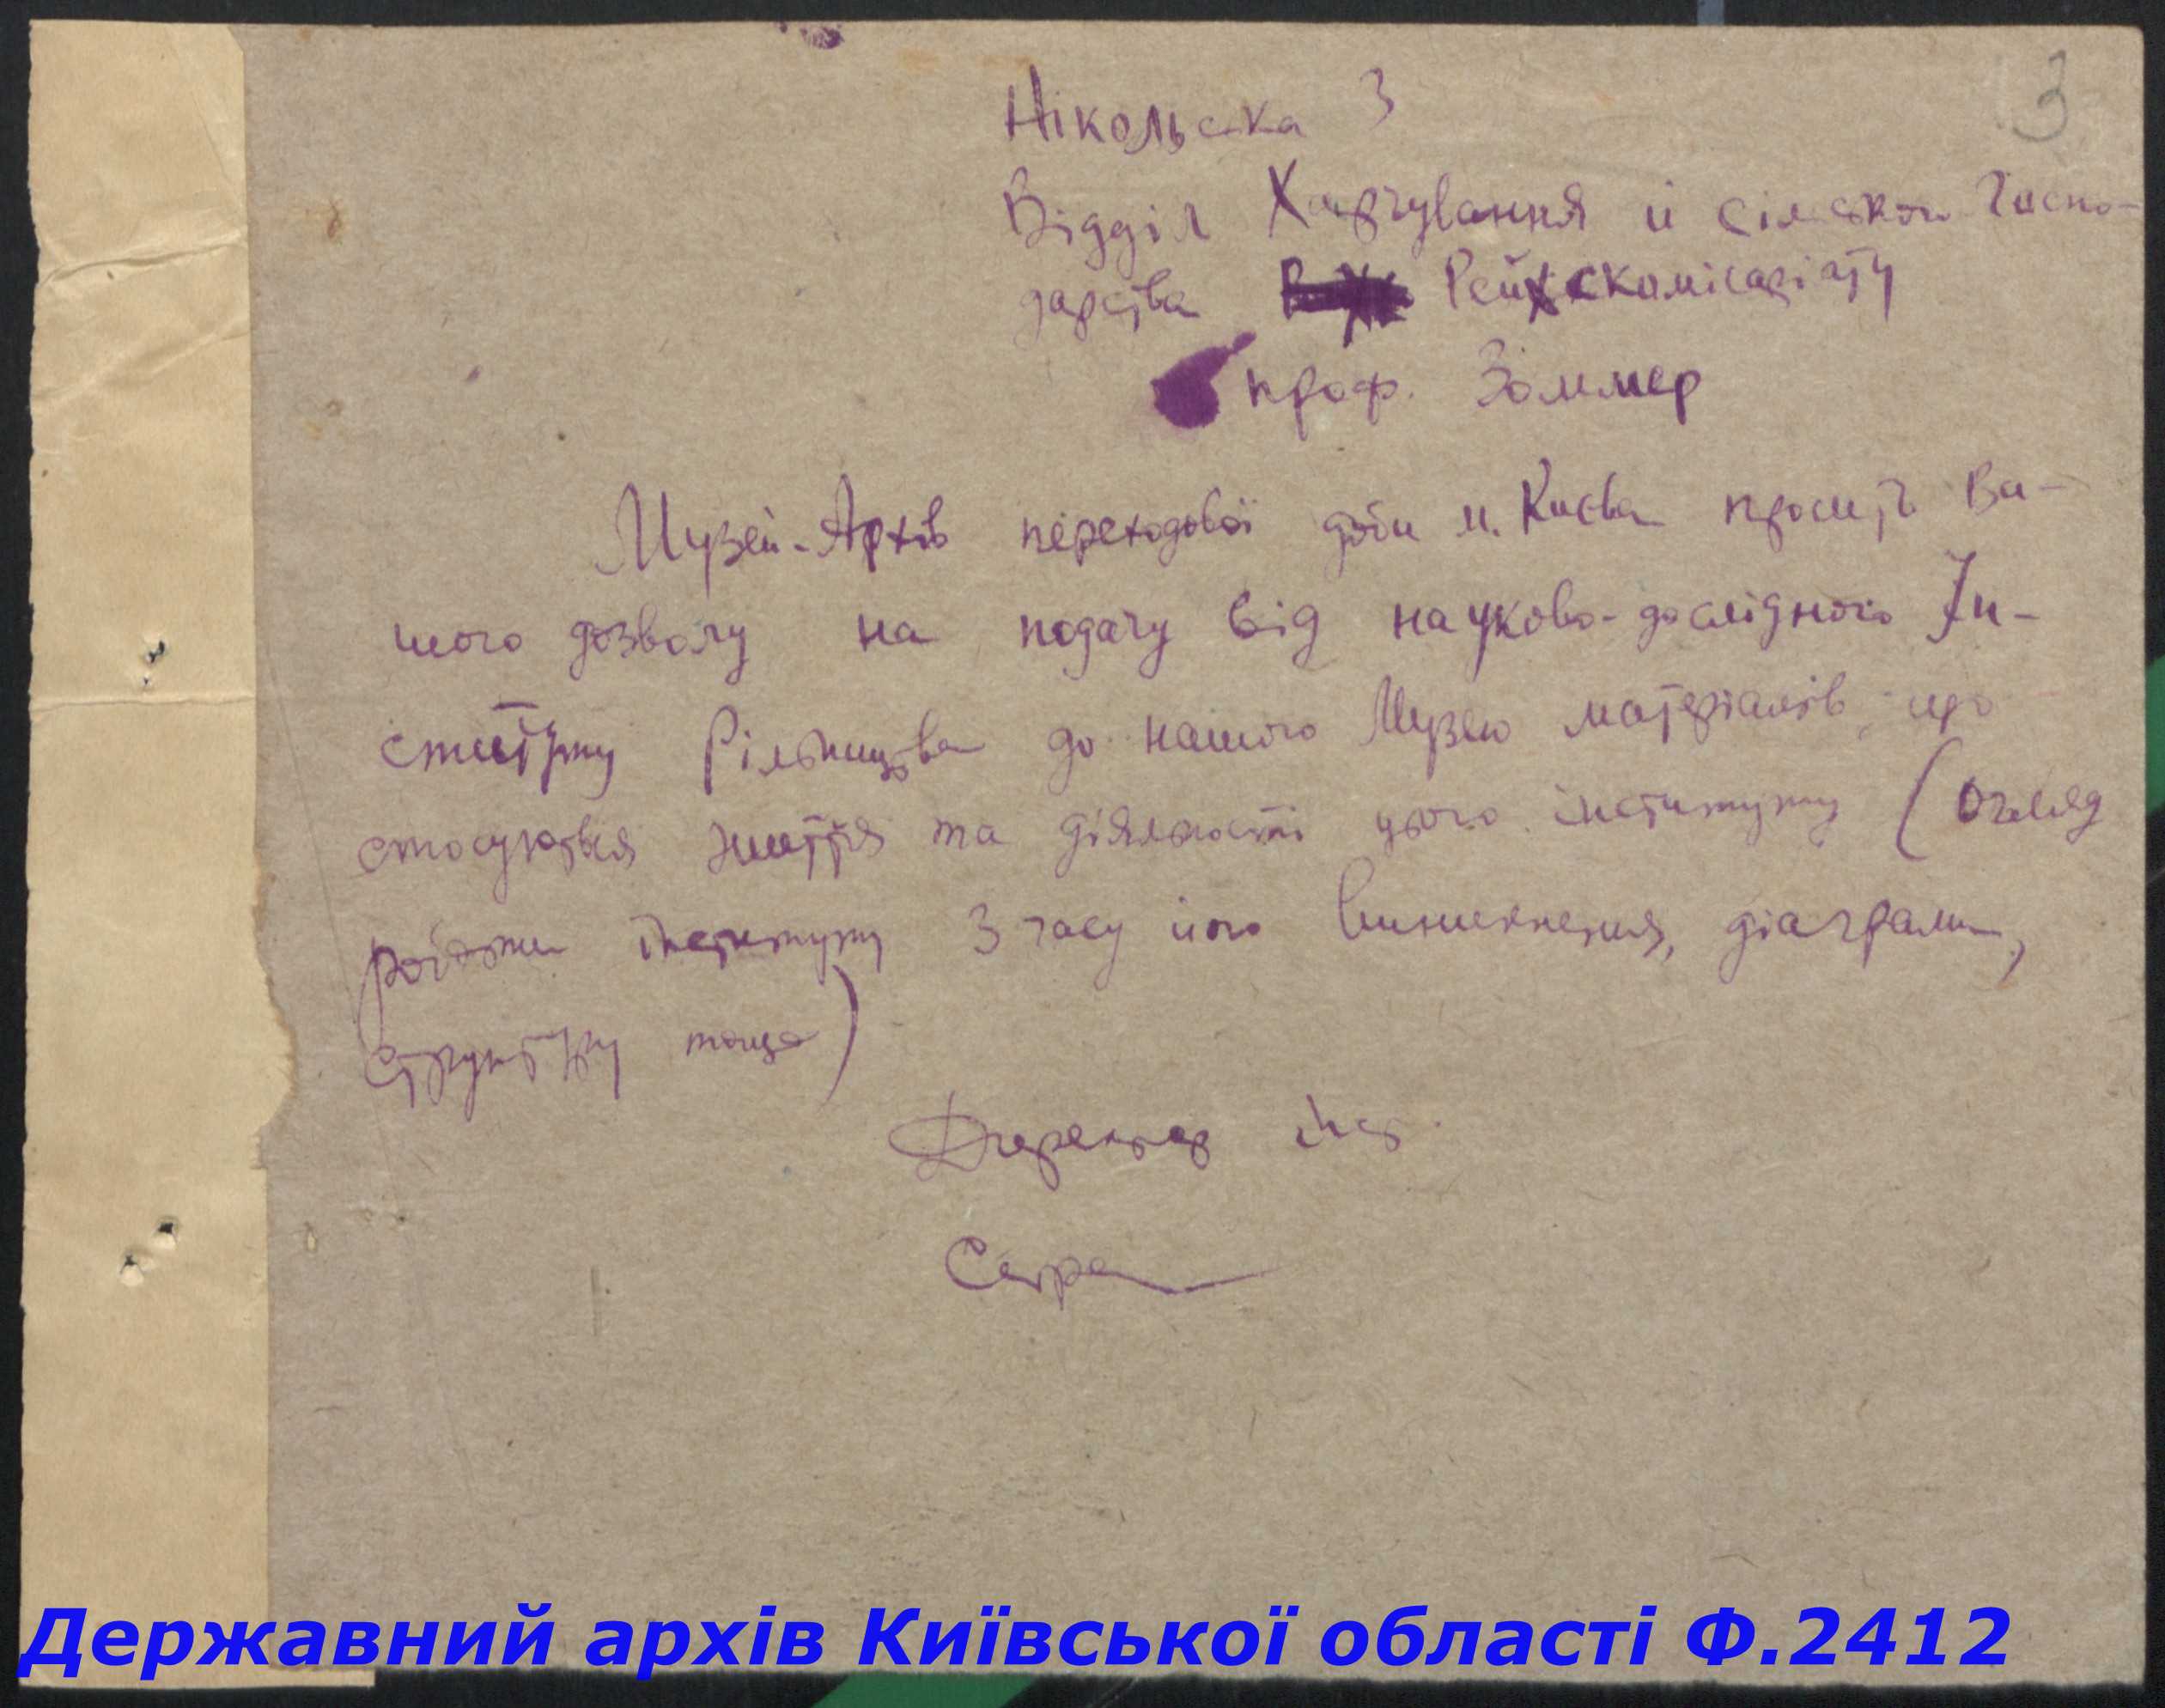 3
Нікольська 3
Відділ Харчування й сільсько Госпо-
дарства Рейхскомісаріяту
проф. Зоммер
Музей-Архів переходової доби м. Києва просить Ва-
шого дозволу на подачу від науково-дослідного Ін-
ституту Рільництва до нашого Музею матеріалів, що
стосуються життя та діяльності цього інституту (огляд
роботи інституту з часу його виникнення, діаграми,
структуру тощо)
Директор
Державний архів Київської області Ф.2412